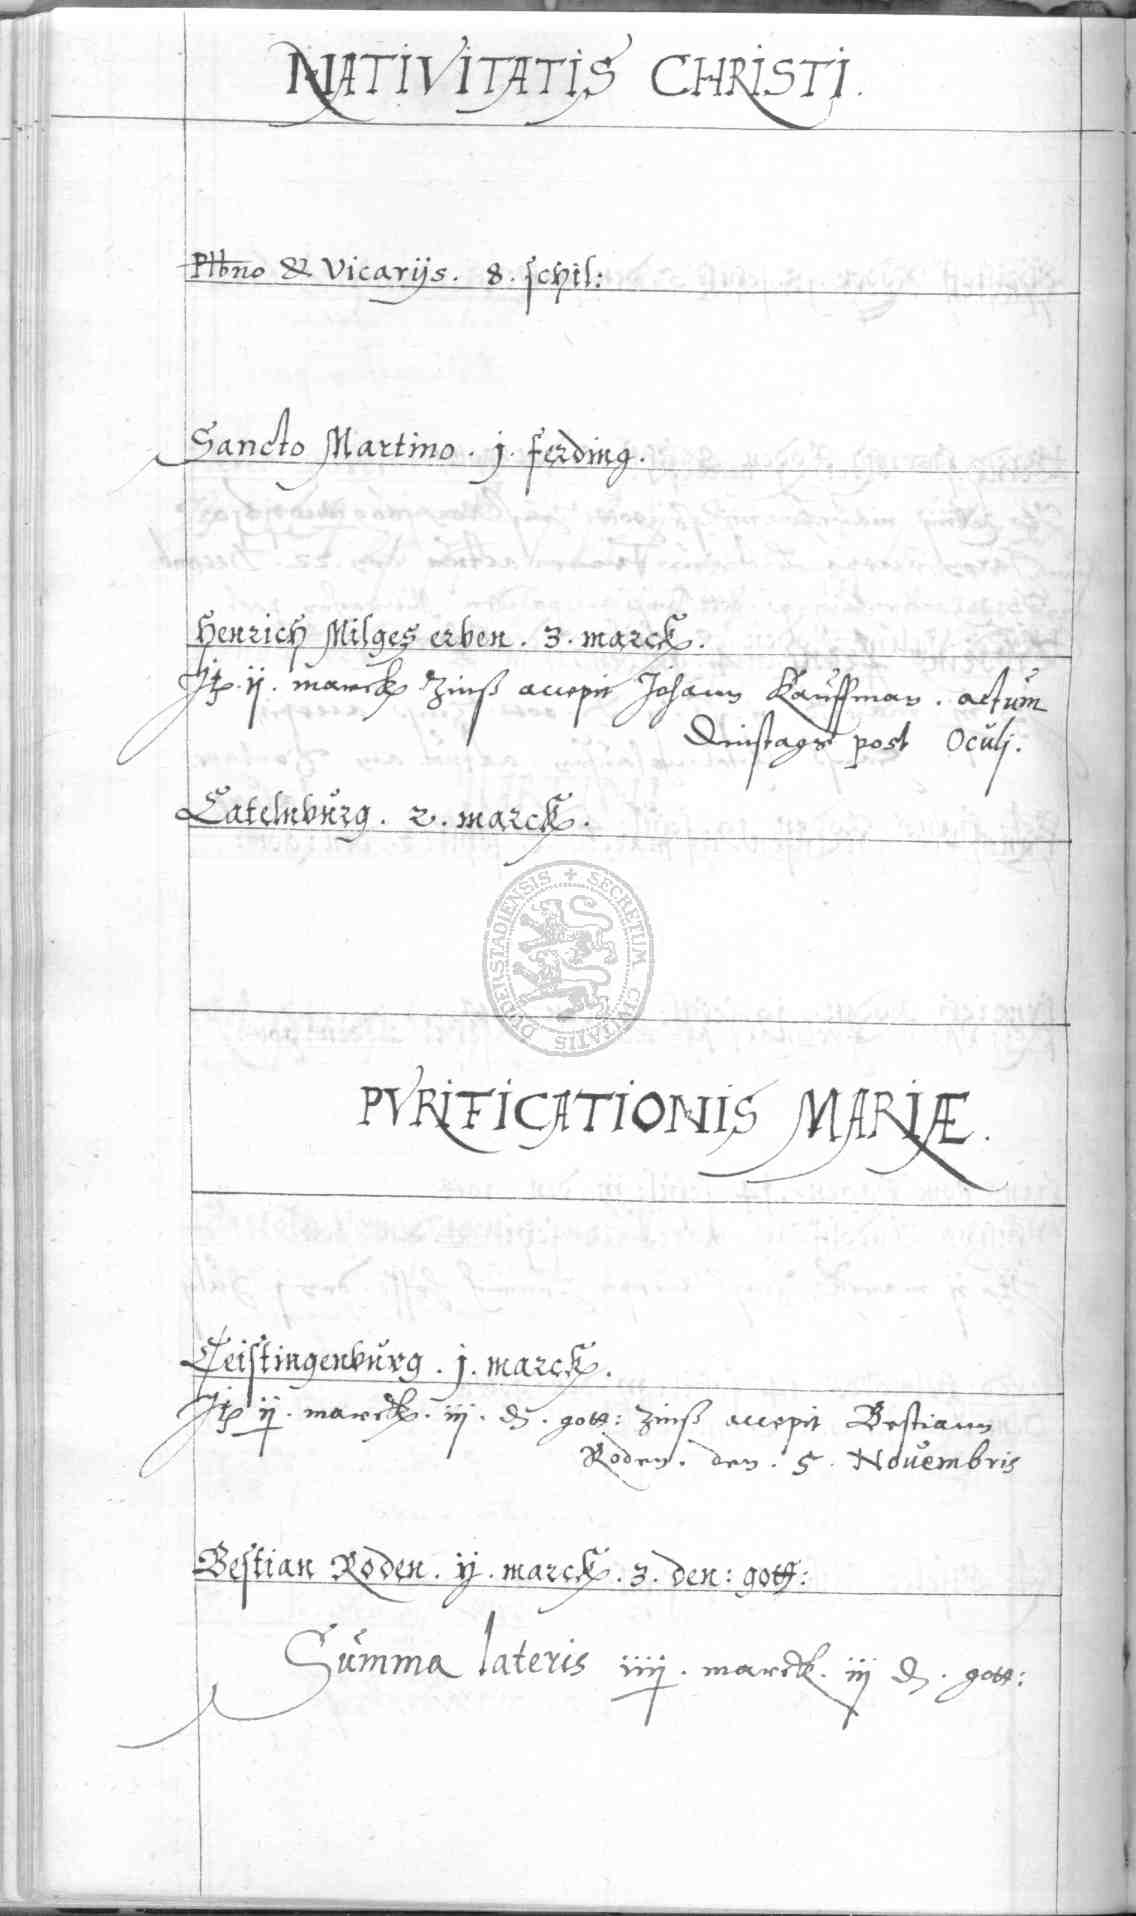 NATIVITATIS CHRISTI.
Plbno & Vicarijs. 8. schil:
Sancto Martino. j. ferding.
Henrich Milges erben. 3. marck.
Jt. ij. marck Zinß accepit Johann Kauffman. actum
Dinstags post Oculj.
Catelnburg. 2. marck.
SECRETUM CIVITATIS DUDERSTADIENSIS
PVRIFICATIONIS MARIÆ.
Teistingenburg. j. marck.
Jt ij. marck. iij. d. gott: Zinß accepit Bestiann
Roden. den. 5. Novembris
Bestian Roden. ij. marck. 3. den: gott:
Summa lateris iiij. marck. iij d. gott: